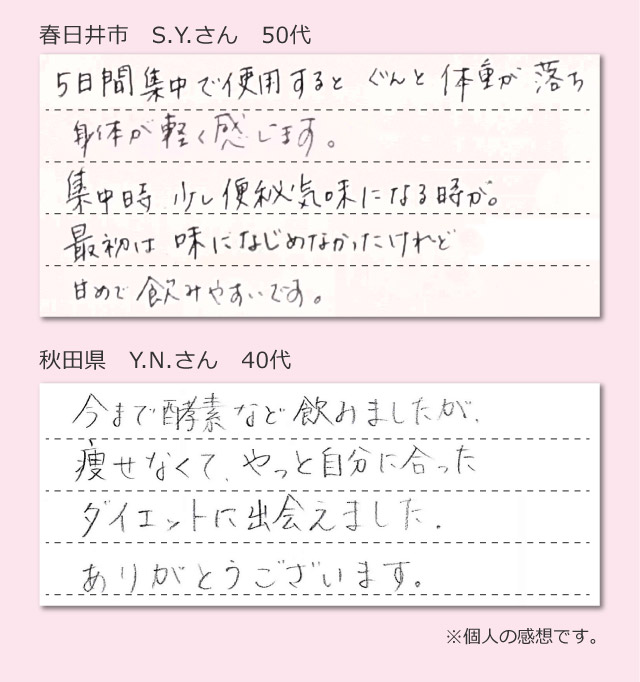 春日井市　S.Y.さん　50代
5日間集中で使用すると ぐんと 体重が 落ち
身体が軽く感じます。
集中時 少し便秘気味になる時が。
最初は 味になじめなかったけれど
甘めで 飲みやすいです。
秋田県　Y.N.さん　40代
今まで酵素など飲みましたが、
痩せなくて、やっと自分に合った
ダイエットに出会えました.
ありがとうございます。
※個人の感想です。